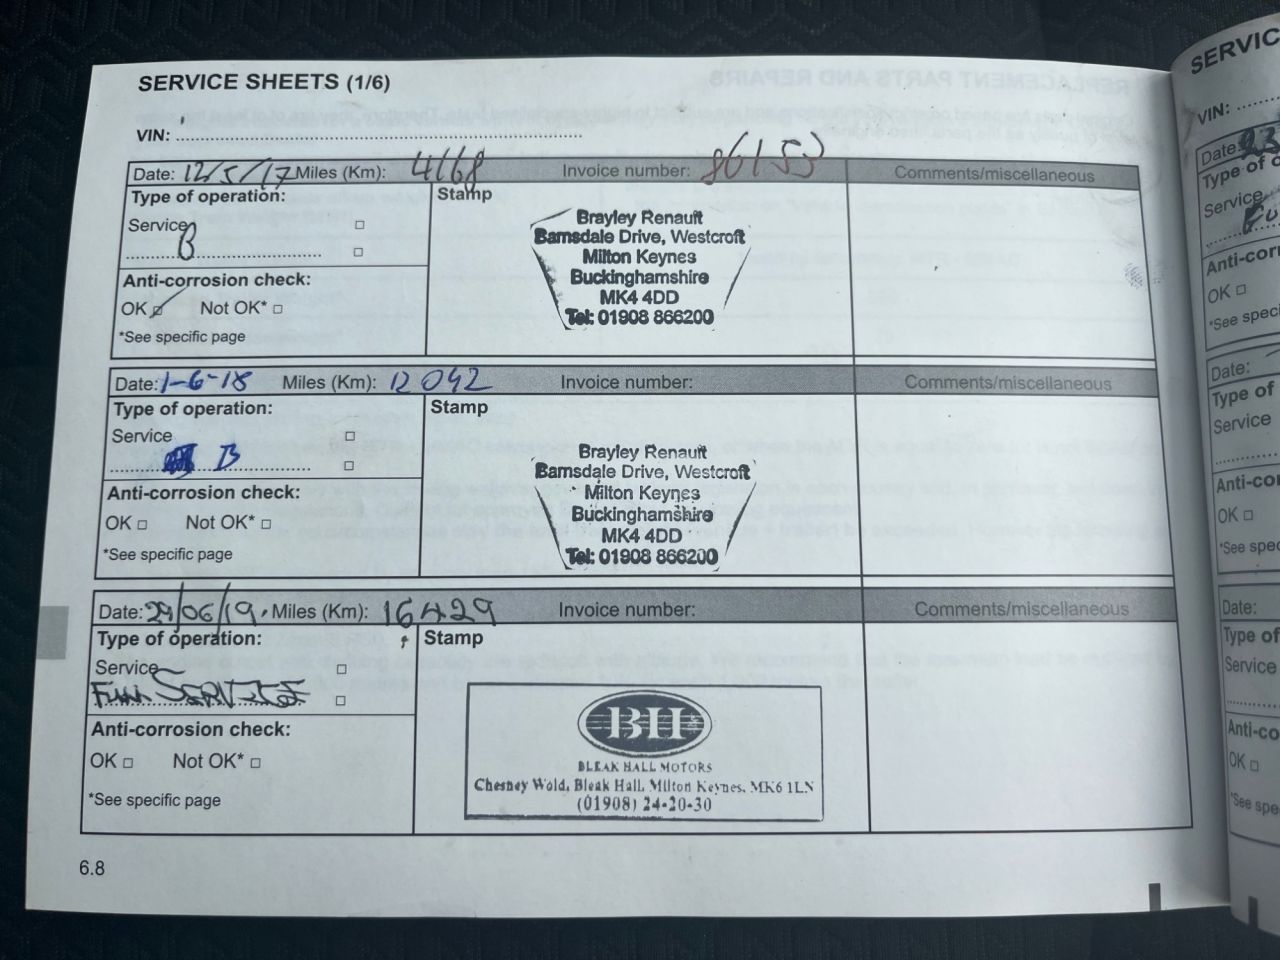 SERVICE SHEETS (1/6)
VIN:
Date: 12/5/17 Miles (Km): 4168 Invoice number: 86153 Comments/miscellaneous
Type of operation:
Stamp
Service
B
Anti-corrosion check:
OK Not OK*
*See specific page
Brayley Renault
Barnsdale Drive, Westcroft
Milton Keynes
Buckinghamshire
MK4 4DD
Tel: 01908 866200
Date: 1-6-18 Miles (Km): 12042 Invoice number: Comments/miscellaneous
Type of operation:
Stamp
Service
B
Anti-corrosion check:
OK Not OK*
*See specific page
Brayley Renault
Barnsdale Drive, Westcroft
Milton Keynes
Buckinghamshire
MK4 4DD
Tel: 01908 866200
Date: 29/06/19. Miles (Km): 16429 Invoice number: Comments/miscellaneous
Type of operation:
Stamp
Service
Full SERVICE
Anti-corrosion check:
OK Not OK*
*See specific page
BH
BLEAK HALL MOTORS
Chesney Wold, Bleak Hall, Milton Keynes, MK6 1LN
(01908) 24-20-30
6.8
SERVIC
VIN:
Date:
Type of
Service
Anti-corr
OK
*See speci
Date:
Type of
Service
Anti-co
OK
*See spec
Date:
Type of
Service
Anti-co
OK
*See spe